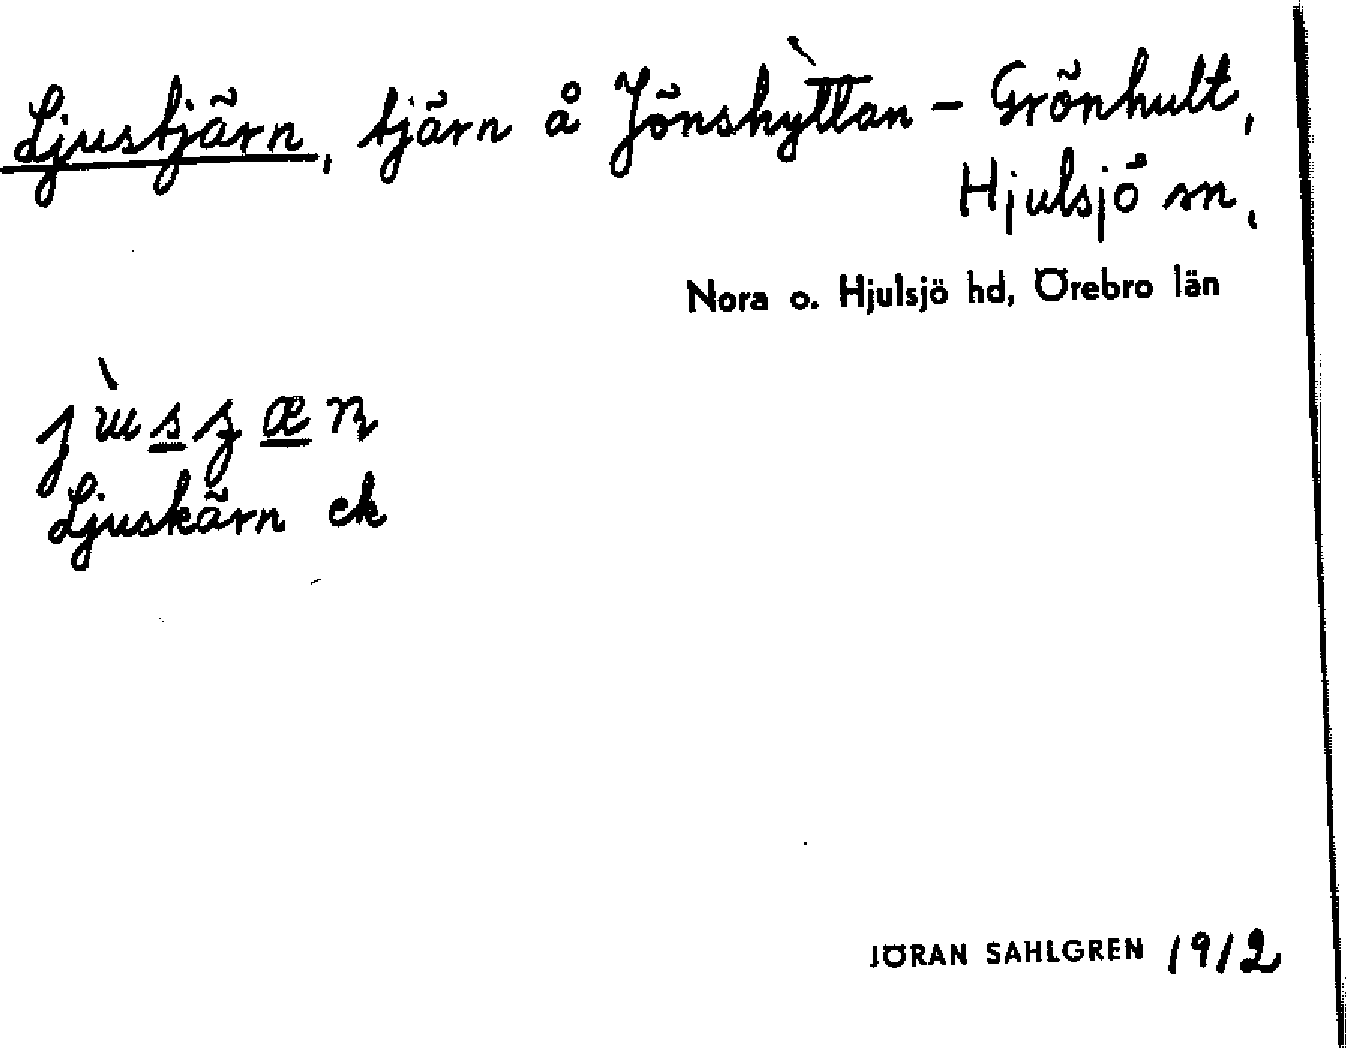 Ljustjärn, tjärn å Jönshyttan – Grönhult,
Hjulsjö sn,
Nora o. Hjulsjö hd, Örebro län
Ljuskärn ek
JÖRAN SAHLGREN 1912